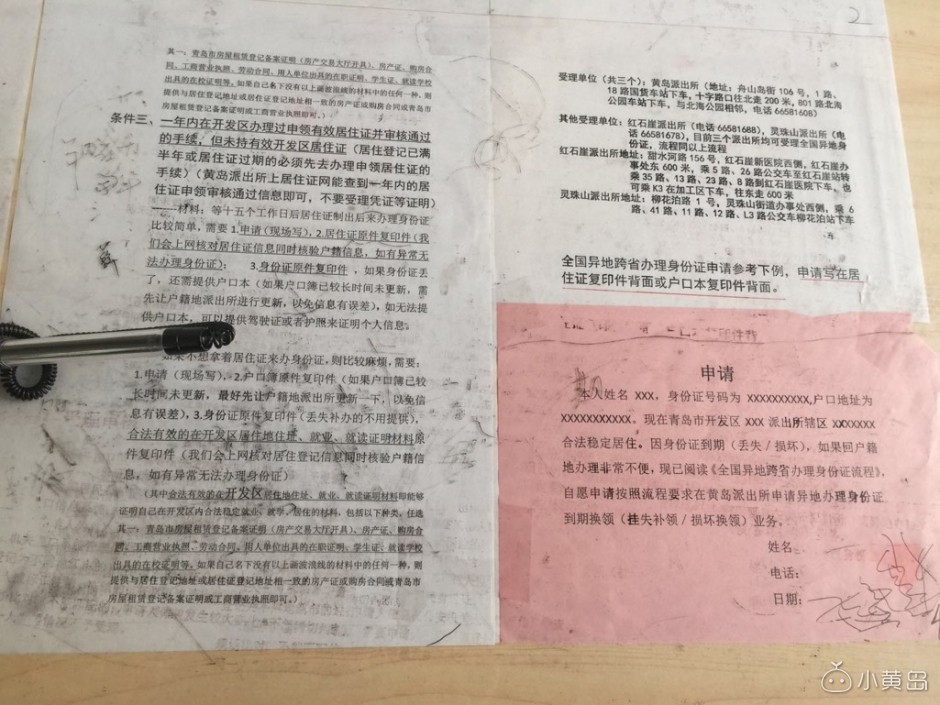 其一：青岛市房屋租赁登记备案证明（房产交易大厅开具）、房产证、购房合
同、工商营业执照、劳动合同、用人单位出具的在职证明、学生证、就读学校
出具的在校证明等，如果自己名下没有以上波浪线的材料中的任何一种，则
提供与居住登记地址或居住证登记地址相一致的房产证或购房合同或青岛市
房屋租赁登记备案证明或工商营业执照即可。）
条件三、一年内在开发区办理过申领有效居住证并审核通过
的手续，但未持有效开发区居住证（居住登记已满
半年或居住证过期的必须先去办理申领居住证的
手续）（黄岛派出所上居住证网能查到一年内的居
住证申领审核通过信息即可，不要受理凭证等证明）
——材料：等十五个工作日后居住证制出后来办理身份证
比较简单，需要1.申请（现场写），2.居住证原件复印件（我
们会上网核对居住证信息同时核验户籍信息，如有异常无
法办理身份证）； 3.身份证原件复印件，如果身份证丢
了，还需提供户口本（如果户口簿已较长时间未更新，需
先让户籍地派出所进行更新，以免信息有误差），如无法提
供户口本，可以提供驾驶证或者护照来证明个人信息。
如果不想拿着居住证来办身份证，则比较麻烦，需要：
1.申请（现场写），2.户口簿原件复印件（如果户口簿已较
长时间未更新，最好先让户籍地派出所更新一下，以免信
息有误差），3.身份证原件复印件（丢失补办的不用提供），
合法有效的在开发区居住地住址、就业、就读证明材料原
件复印件（我们会上网核对居住登记信息同时核验户籍信
息，如有异常无法办理身份证）
（其中合法有效的在开发区居住地住址、就业、就读证明材料即能够
证明自己在开发区内合法稳定就业、就学、居住的材料，包括以下种类，任选
其一：青岛市房屋租赁登记备案证明（房产交易大厅开具）、房产证、购房合
同、工商营业执照、劳动合同、用人单位出具的在职证明、学生证、就读学校
出具的在校证明等，如果自己名下没有以上波浪线的材料中的任何一种，则
提供与居住登记地址或居住证登记地址相一致的房产证或购房合同或青岛市
房屋租赁登记备案证明或工商营业执照即可。）
2
受理单位（共三个）：黄岛派出所（地址：舟山岛街106号，1路、
18路国货车站下车，十字路口往北走200米，801路北海
公园车站下车，与北海公园相邻，电话66581608）
其他受理单位：红石崖派出所（电话66581688），灵珠山派出所（电
话66581678），目前三个派出所均可受理全国异地身
份证，流程同以上流程
红石崖派出所地址：甜水河路156号，红石崖新医院西侧，红石崖办
事处东600米，乘5路、26路公交车至红石崖站转
乘35路、13路、23路、8路到红石崖医院下车，也
可乘K3在加工区下车，往东走600米
灵珠山派出所地址：柳花泊路1号，灵珠山街道办事处西侧，乘6
路、41路、11路、12路、L3路公交车柳花泊站下车
全国异地跨省办理身份证申请参考下例，申请写在居
住证复印件背面或户口本复印件背面。
申请
本人姓名XXX，身份证号码为XXXXXXXXXX,户口地址为
XXXXXXXXXXX。现在青岛市开发区XXX派出所辖区XXXXXXX
合法稳定居住。因身份证到期（丢失/损坏），如果回户籍
地办理非常不便，现已阅读《全国异地跨省办理身份证流程》，
自愿申请按照流程要求在黄岛派出所申请异地办理身份证
到期换领（挂失补领/损坏换领）业务。
姓名：
电话：
日期：
小黄岛